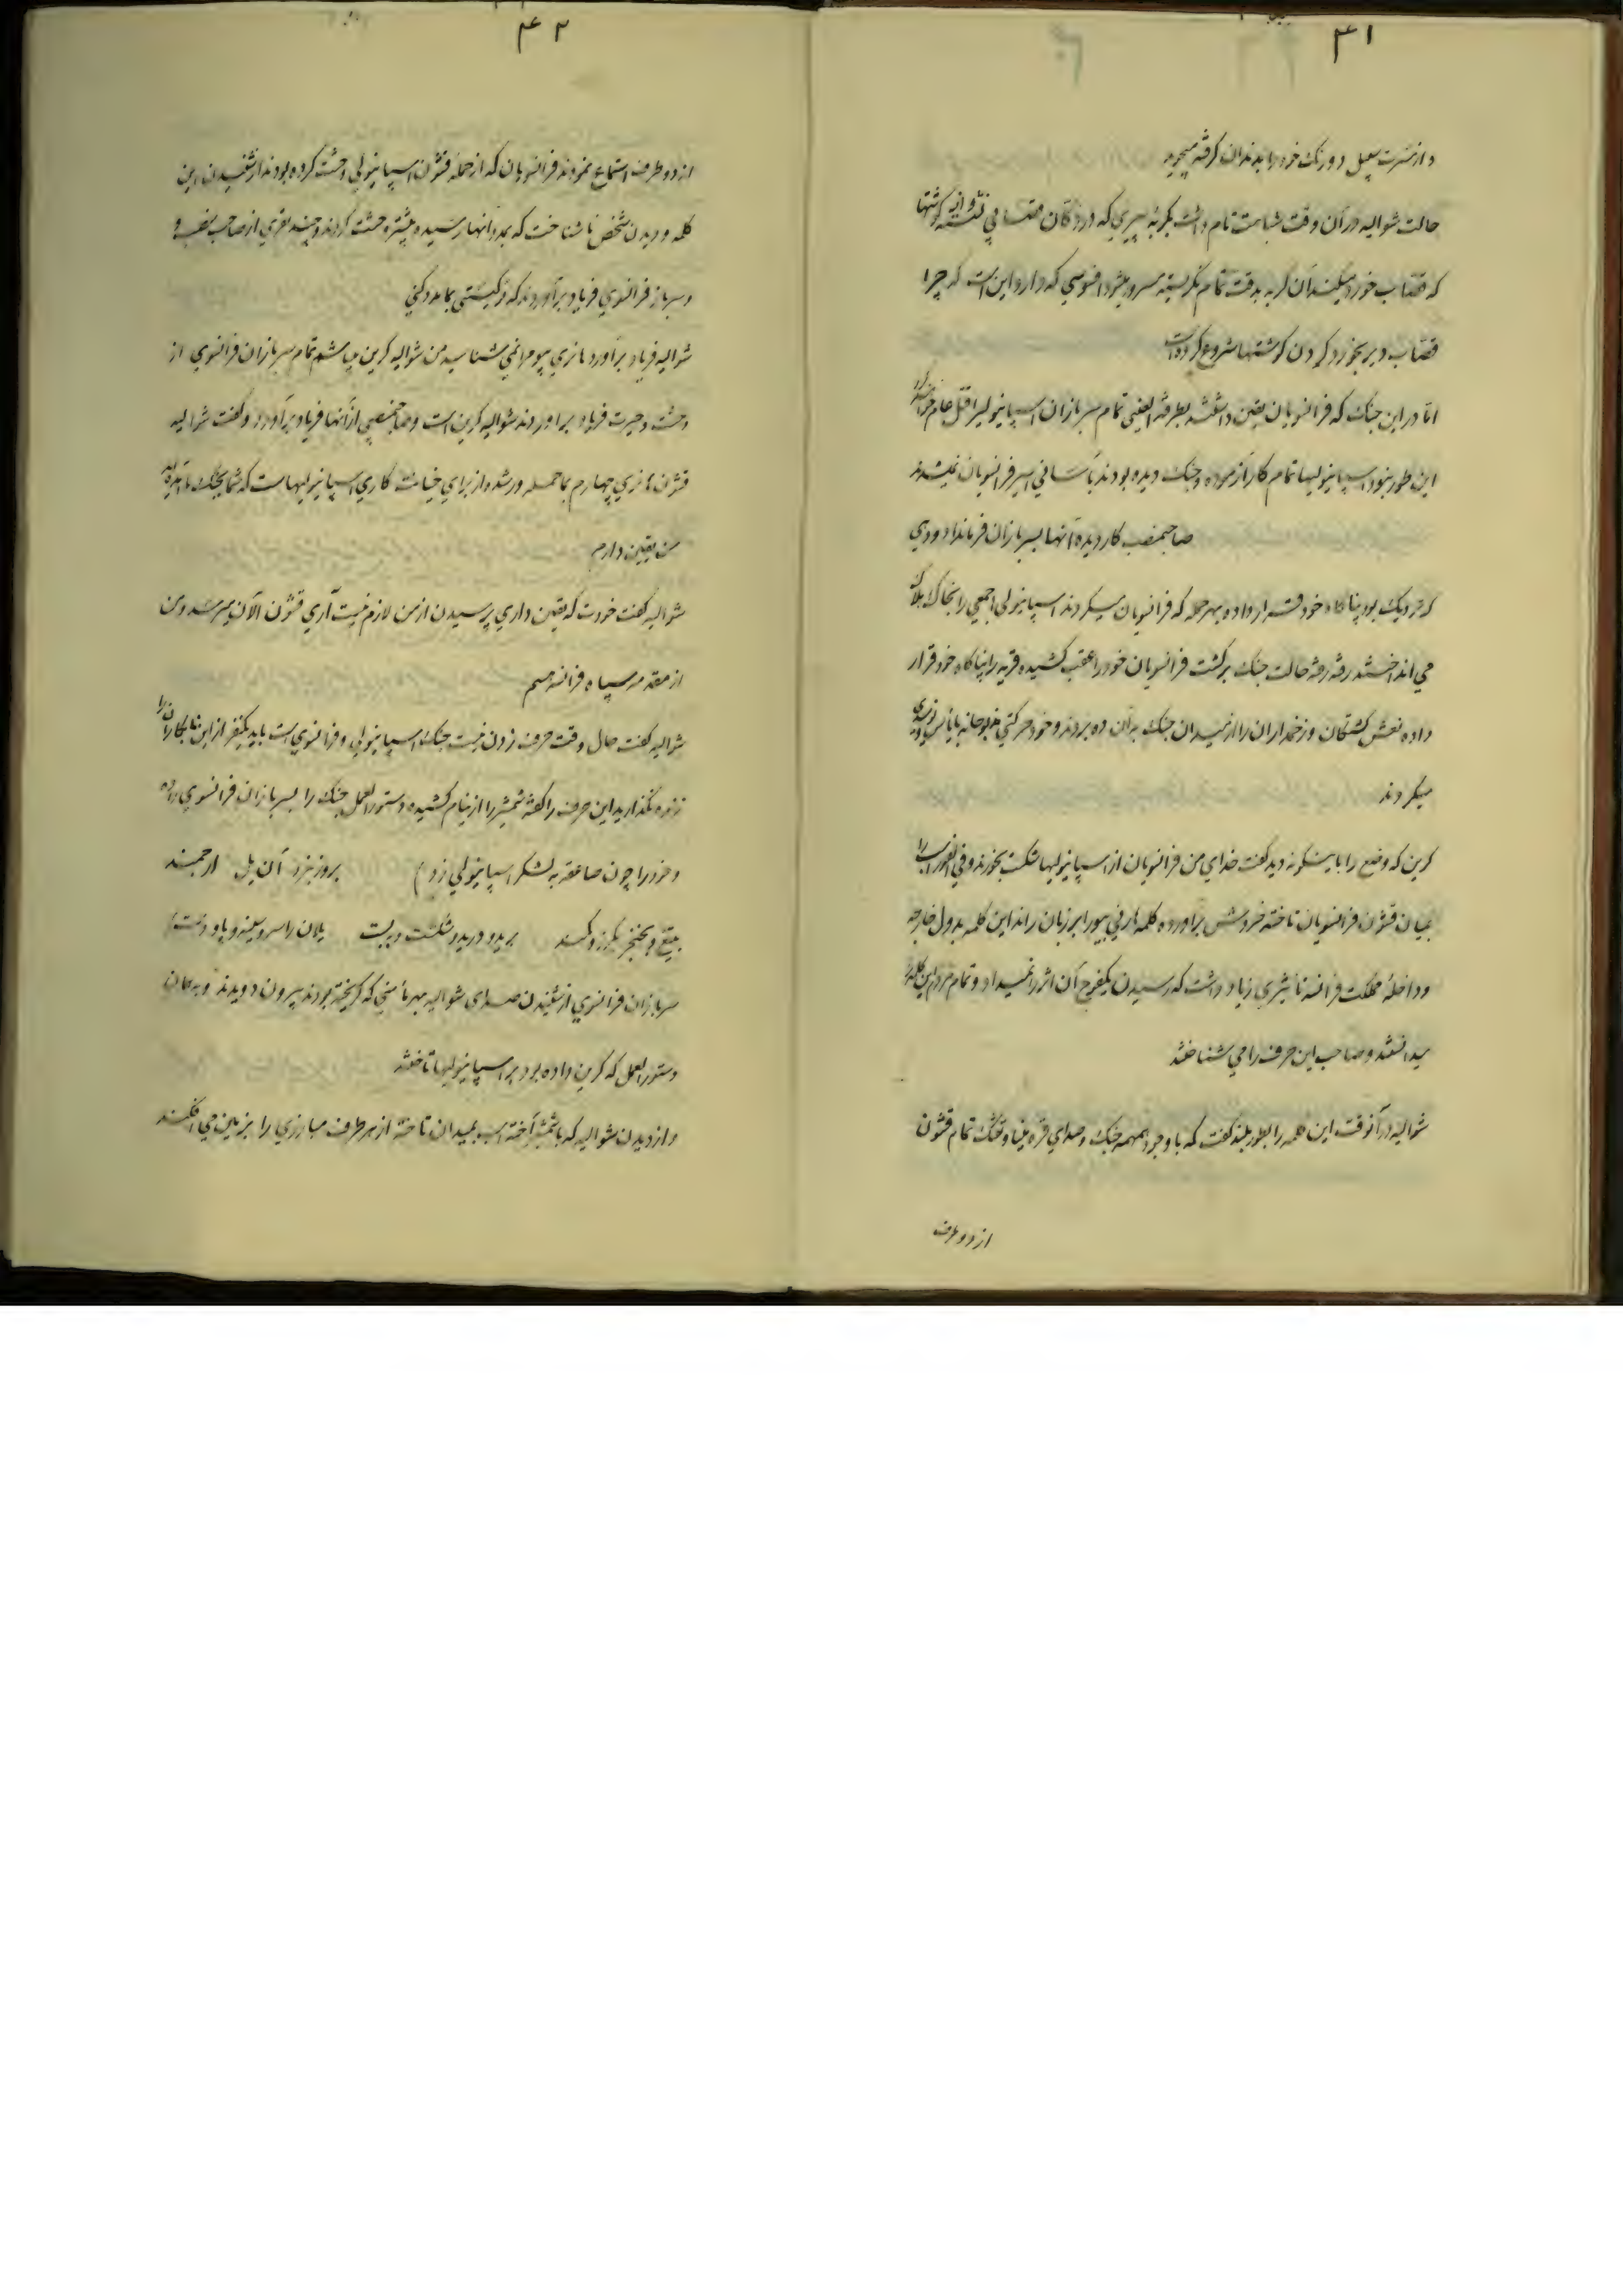 ۴۱
و از مسرت سبیل دو رنگ خود را بدندان گرفته میجوید
حالت شوالیه در آن وقت شباهت تام داشت بگربهٔ پیری که در دکان قصابی نشسته و آن گوشتها
که قصاب خورد میکند آن گربه بدقت تمام نگریسته مسرور میشود افسوسی که دارد این است که چرا
قصاب دیر بخورد کردن گوشتها شروع کرده است
اما در این جنگ که فرانسویان یقین داشتند بطرفة العینی تمام سربازان اسپانیولیرا قتل عام خواهند کرد
این طور نبود اسپانیولیها تمام کار آزموده و جنگ دیده بودند بآسانی اسیر فرانسویان نمیشدند
صاحبمنصب کار دیده آنها بسربازان فرمانداد و دهی
که نزدیک بود پناگاه خود قرار داده بهر حمله که فرانسویان میکردند اسپانیولی جمعی را بخاک هلاک
می انداختند رفته رفته حالت جنگ برگشت فرانسویان خود را عقب کشیده قریه را پناگاه خود قرار
داده نعش کشتگان و زخمداران را از میدان جنگ بدان ده بردند و خود حرکتی مذبوحانه با یأس و نومیدی
میکردند
کرین که وضع را باینگونه دید گفت خدای من فرانسویان از اسپانیولیها شکست بخورند و فی الفور اسب را
بمیان قشون فرانسویان تاخته خروش برآورده کلمه هارنی پیور ابر زبان راند این کلمه بدول خارجه
و داخلهٔ مملکت فرانسه تأثیری زیاد داشت که رسیدن یکفوج آن اثر را نمیداد و تمام مردم این کلمه را
میدانستند و صاحب این حرف را می شناختند
شوالیه در آنوقت این کلمه را بطور بلند گفت که با وجود همهمه جنگ و صدای قره بینا و تفنگ تمام قشون
از دو طرف
۴۲
از دو طرف استماع نمودند فرانسویان که از حمله قشون اسپانیولی وحشت کرده بودند از شنیدن این
کلمه و دیدن شخص ناشناخت که بمدد آنها رسیده بیشتر وحشت کردند و چند نفری از صاحب منصب و
سرباز فرانسوی فریاد برآوردند که تو کیستی بما مدد کنی
شوالیه فریاد برآورد هانری پیو مرا نمی شناسید من شوالیه کرین میباشم تمام سربازان فرانسوی از
وحشت و حیرت فریاد براوردند شوالیه کرین است و صاحبمنصبی از آنها فریاد برآورد و گفت شوالیه
قشون هانری چهارم بما حمله ور شده از برای خیانت کاری اسپانیولیهاست که شما بجنگ ما آمده اید
من یقین دارم
شوالیه گفت خودت که یقین داری پرسیدن از من لازم نیست آری قشون الآن میرسد و من
از مقدمه سپاه فرانسه هستم
شوالیه گفت حال وقت حرف زدن نیست جنگ اسپانیولی و فرانسوی است باید یکنفر از این نابکاران را
زنده نگذارید این حرف را گفته شمشیر را از نیام کشیده دستور العمل جنگ را بسربازان فرانسوی داده
و خود را چون صاعقه به لشکر اسپانیولی زد ) بروز نبرد آن یل ارجمند
بتیغ و بخنجر بگرز و کمند برید و درید و شکست و ببست یلان را سر و سینه و پا و دست )
سربازان فرانسوی از شنیدن صدای شوالیه بهر مأمنی که گریخته بودند بیرون دویدند و به همان
دستور العمل که کرین داده بود بر اسپانیولیها تاختند
و از دیدن شوالیه که با شمشیر آخته اسب بمیدان تاخته از هر طرف مبارزی را بزمین می افکند